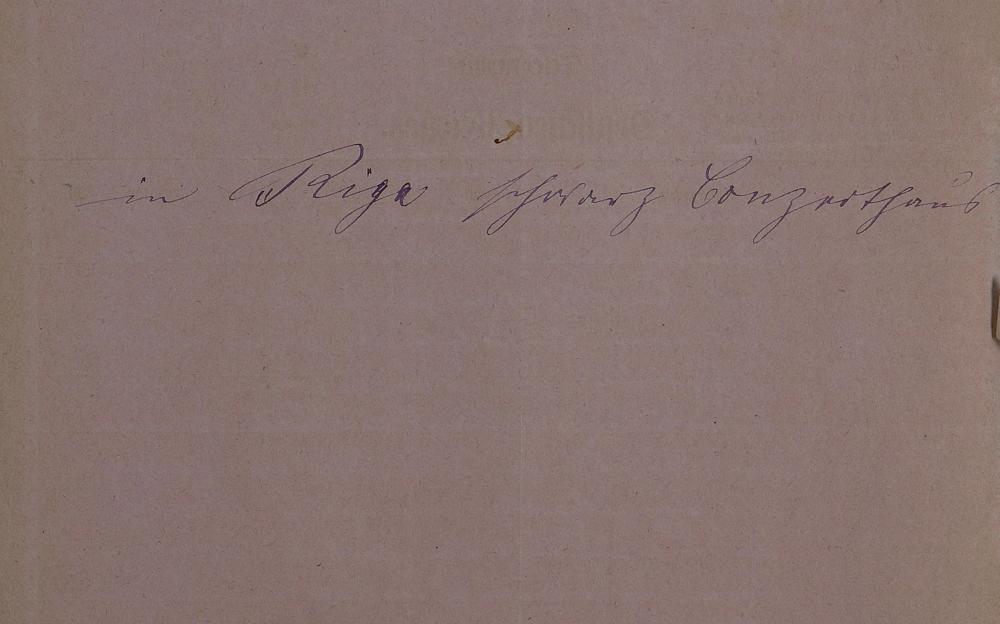 in Riga schwarz Conzerthaus